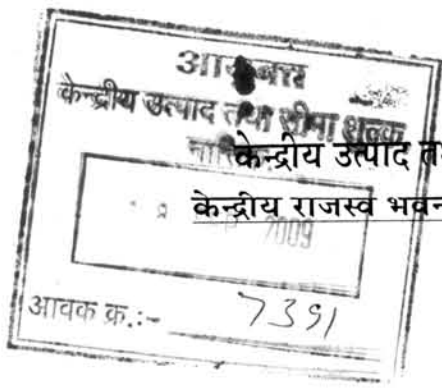 आयुक्त
केन्द्रीय उत्पाद तथा सीमा शुल्क
केन्द्रीय उत्पाद
केन्द्रीय राजस्व भवन
2009
आवक क्र.:- 7391